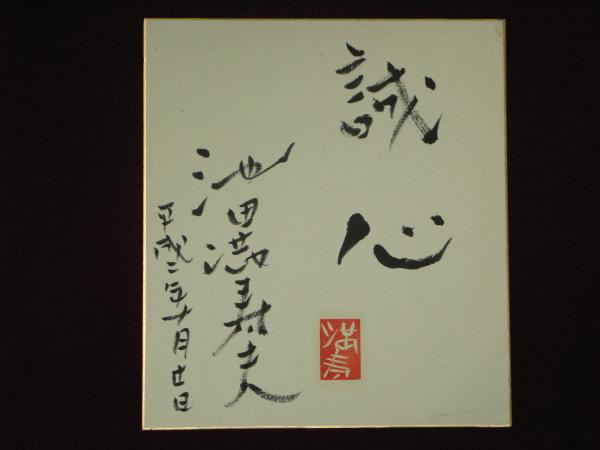 誠心
池田満寿夫
平成二年十月廿日
満寿